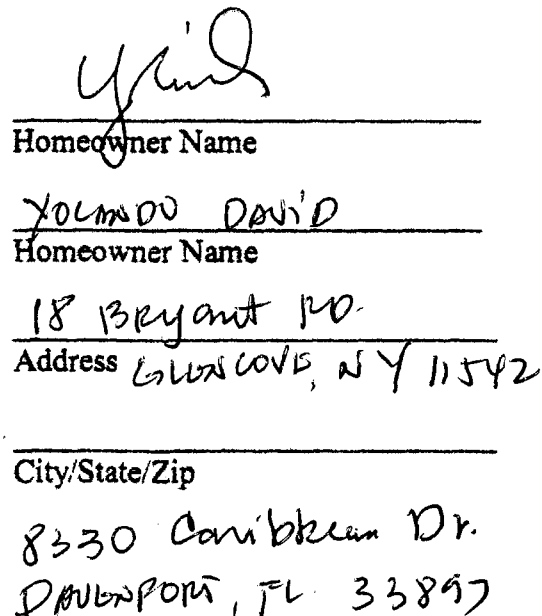 Homeowner Name
YOLANDO DAVID
Homeowner Name
18 Bryant RD.
Address GLEN COVE, NY 11542
City/State/Zip
8330 Caribbean Dr.
DAVENPORT, FL 33897